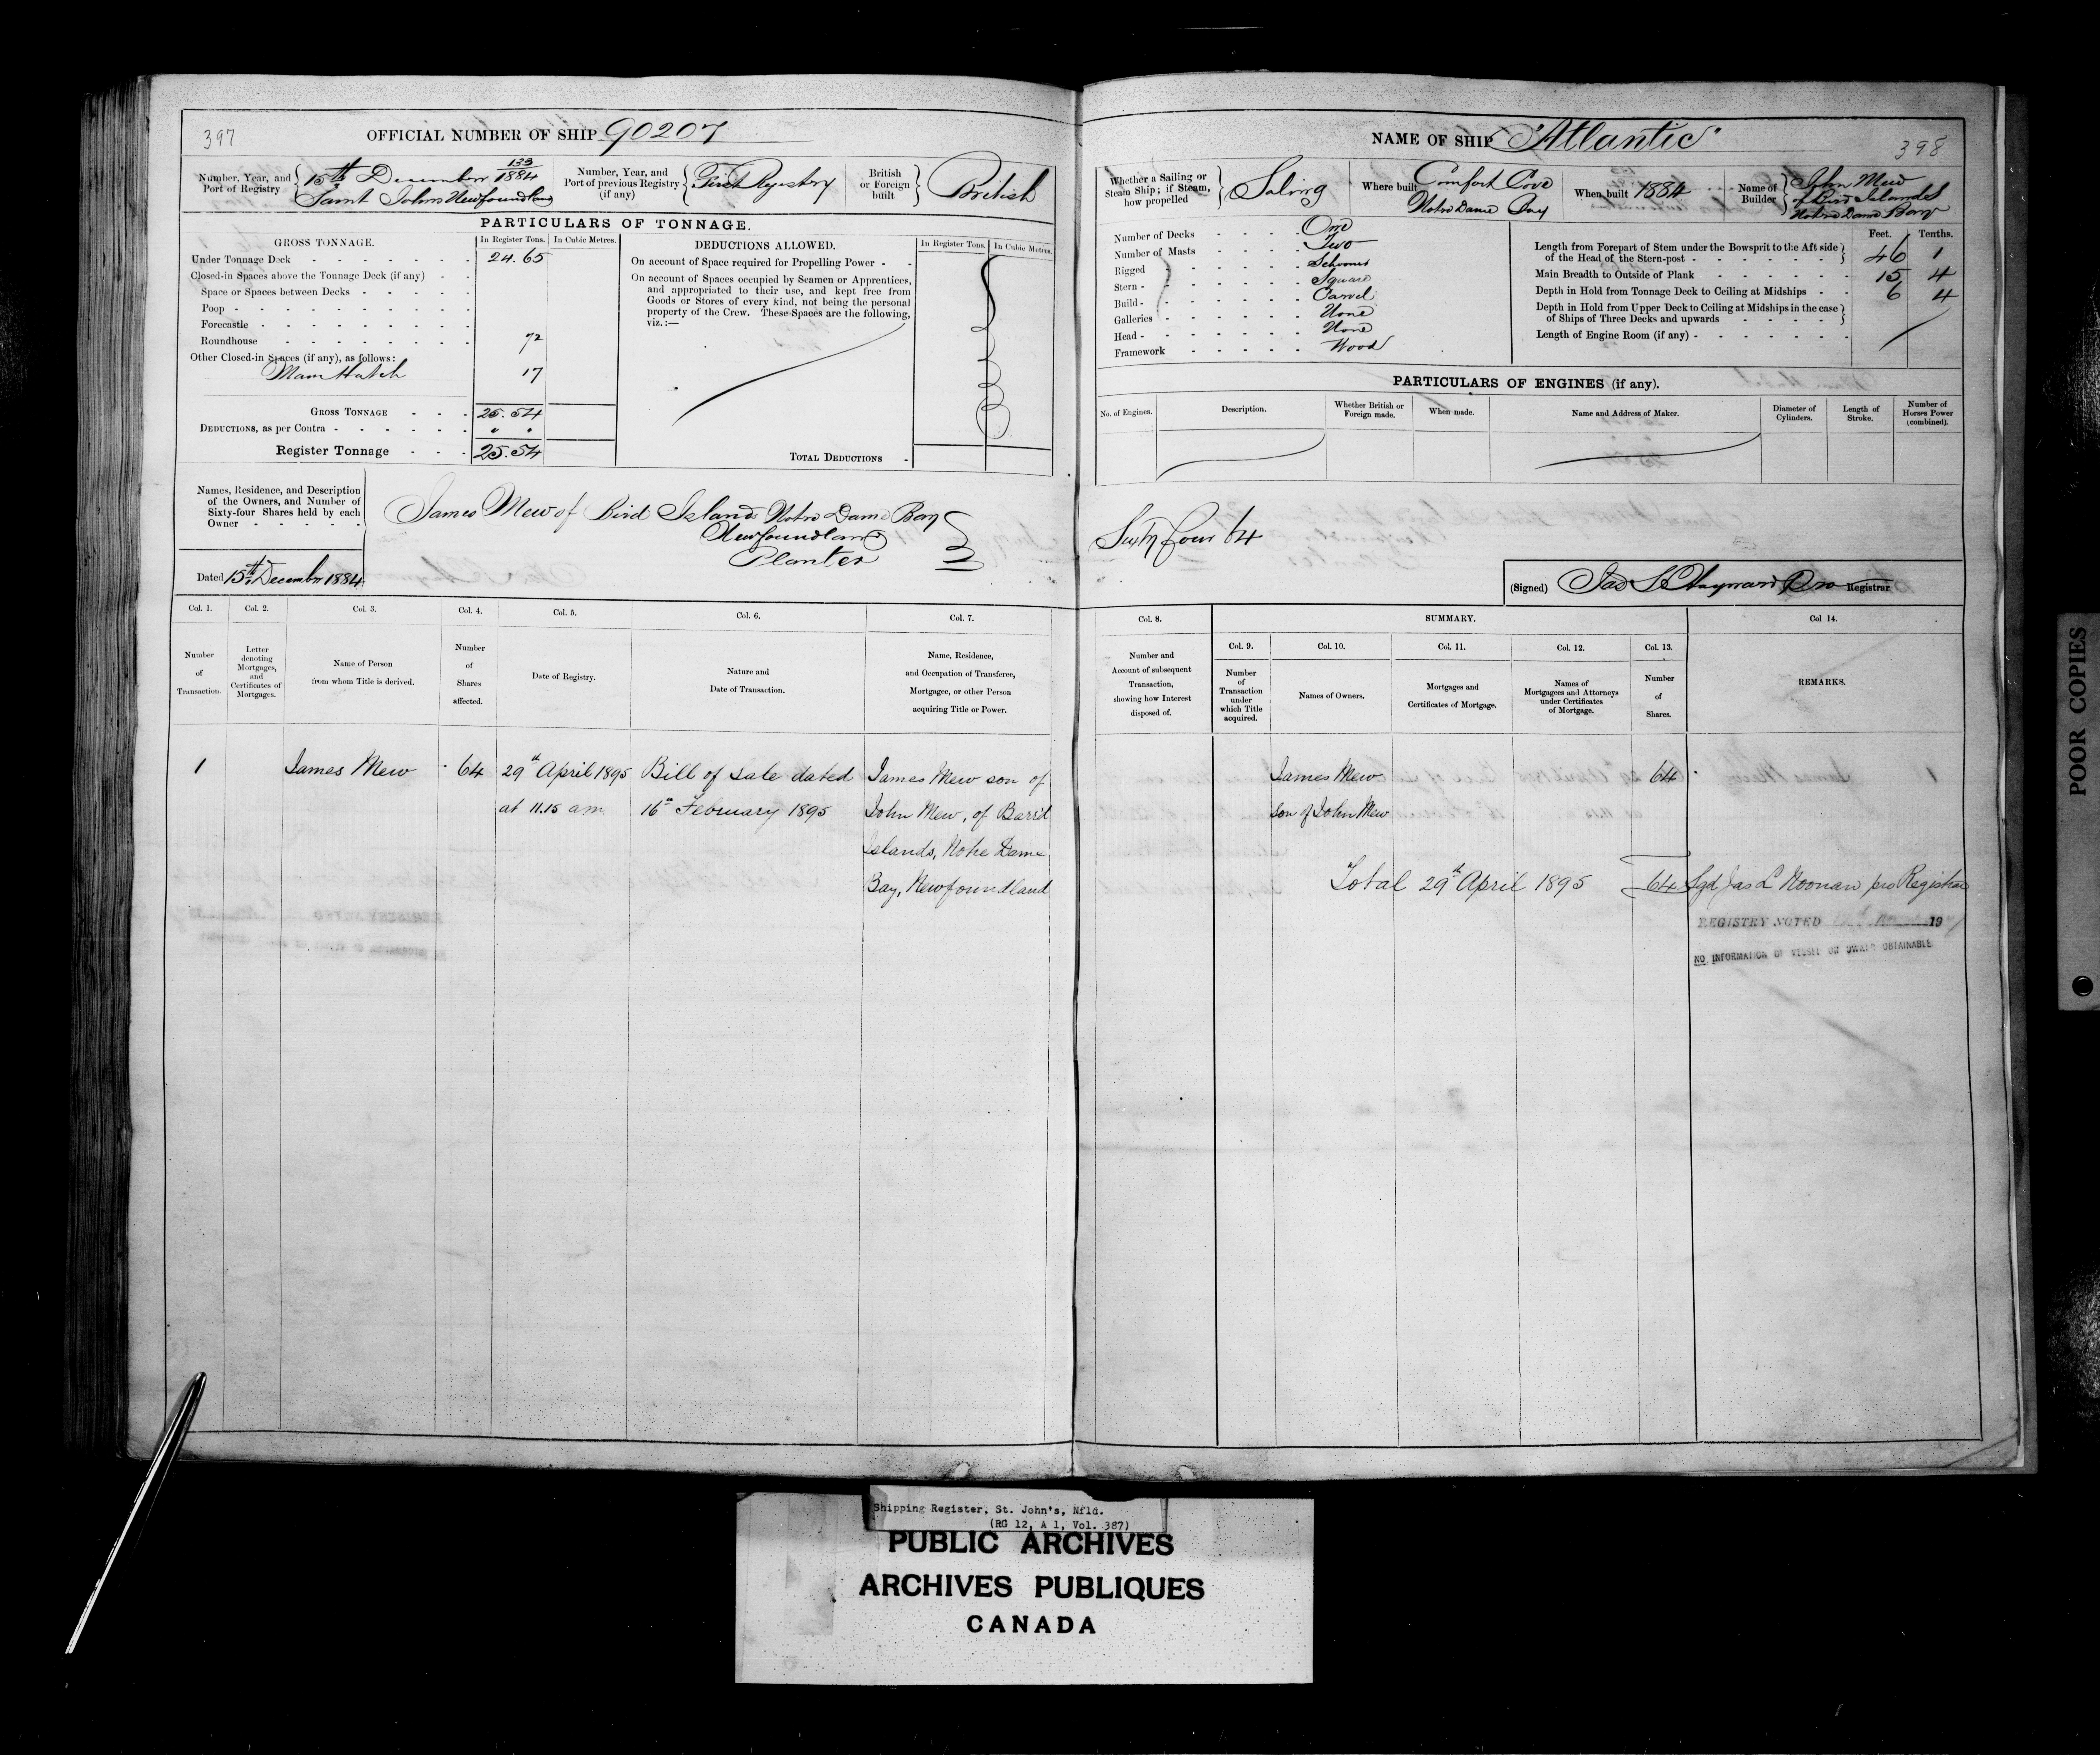 397
OFFICIAL NUMBER OF SHIP 90207
Number, Year, and Port of Registry { 15th December 133/1884 Saint Johns Newfoundland
Number, Year, and Port of previous Registry (if any) { First Registry
British or Foreign built } British
PARTICULARS OF TONNAGE.
GROSS TONNAGE. In Register Tons. In Cubic Metres.
Under Tonnage Deck 24.65
Closed-in Spaces above the Tonnage Deck (if any)
Space or Spaces between Decks
Poop
Forecastle
Roundhouse 72
Other Closed-in Spaces (if any), as follows:
Main Hatch 17
GROSS TONNAGE 25.54
DEDUCTIONS, as per Contra " "
Register Tonnage 25.54
DEDUCTIONS ALLOWED. In Register Tons. In Cubic Metres.
On account of Space required for Propelling Power
On account of Spaces occupied by Seamen or Apprentices,
and appropriated to their use, and kept free from
Goods or Stores of every kind, not being the personal
property of the Crew. These Spaces are the following,
viz.:—
TOTAL DEDUCTIONS
Names, Residence, and Description
of the Owners, and Number of
Sixty-four Shares held by each
Owner
James Mew of Bird Islands Notre Dame Bay
Newfoundland
Planter
Dated 15th December 1884
Col. 1. Col. 2. Col. 3. Col. 4. Col. 5. Col. 6. Col. 7.
Number of Transaction.
Letter denoting Mortgages, and Certificates of Mortgages.
Name of Person from whom Title is derived.
Number of Shares affected.
Date of Registry.
Nature and Date of Transaction.
Name, Residence, and Occupation of Transferee, Mortgagee, or other Person acquiring Title or Power.
1 James Mew 64 29th April 1895 Bill of Sale dated James Mew son of
at 11.15 am 16th February 1895 John Mew, of Barr'd
Islands, Notre Dame
Bay, Newfoundland
NAME OF SHIP "Atlantic"
398
Whether a Sailing or Steam Ship; if Steam, how propelled } Saling
Where built Comfort Cove Notre Dame Bay
When built 1884
Name of Builder } John Mew of Bird Islands Notre Dame Bay
Number of Decks One
Number of Masts Two
Rigged Schooner
Stern Square
Build Carvel
Galleries None
Head None
Framework Wood
Feet. Tenths.
Length from Forepart of Stem under the Bowsprit to the Aft side of the Head of the Stern-post 46 1
Main Breadth to Outside of Plank 15 4
Depth in Hold from Tonnage Deck to Ceiling at Midships 6 4
Depth in Hold from Upper Deck to Ceiling at Midships in the case of Ships of Three Decks and upwards
Length of Engine Room (if any)
PARTICULARS OF ENGINES (if any).
No. of Engines. Description. Whether British or Foreign made. When made. Name and Address of Maker. Diameter of Cylinders. Length of Stroke. Number of Horses Power (combined).
Sixty four 64
(Signed) Jas Hayward Pro Registrar
Col. 8. SUMMARY. Col 14.
Col. 9. Col. 10. Col. 11. Col. 12. Col. 13.
Number and Account of subsequent Transaction, showing how Interest disposed of.
Number of Transaction under which Title acquired.
Names of Owners.
Mortgages and Certificates of Mortgage.
Names of Mortgagees and Attorneys under Certificates of Mortgage.
Number of Shares.
REMARKS.
James Mew 64
son of John Mew
Total 29th April 1895 64 Sgd Jas L Noonan pro Registrar
REGISTRY NOTED 19
NO INFORMATION OF VESSEL OR OWNER OBTAINABLE
POOR COPIES
Shipping Register, St. John's, Nfld.
(RG 12, A 1, Vol. 387)
PUBLIC ARCHIVES
ARCHIVES PUBLIQUES
CANADA